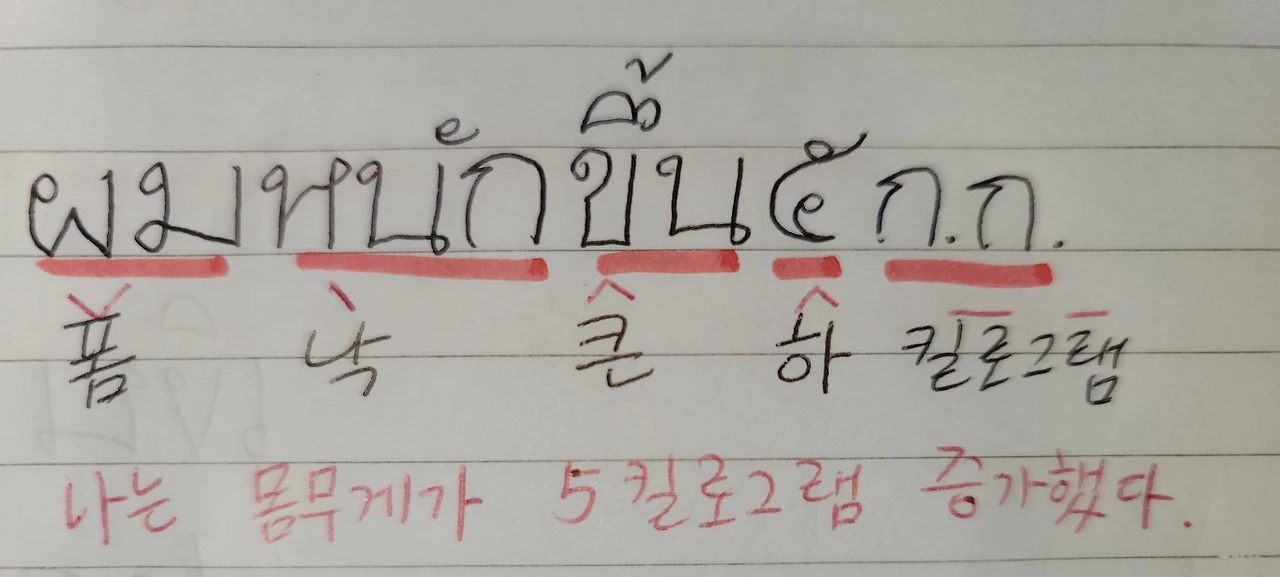 ผมหนักขึ้น ๕ ก.ก.
폼 낙 큰 하 킬로그램
나는 몸무게가 5킬로그램 증가했다.